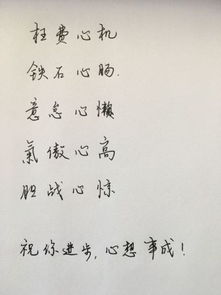 枉费心机
铁石心肠.
意怠心懒
氣傲心高
胆战心惊
祝你进步,心想事成!